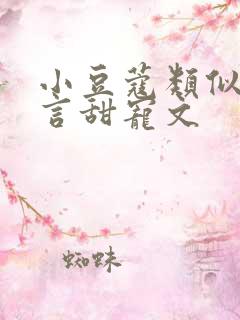 小豆蔻類似
言甜寵文
蜘蛛